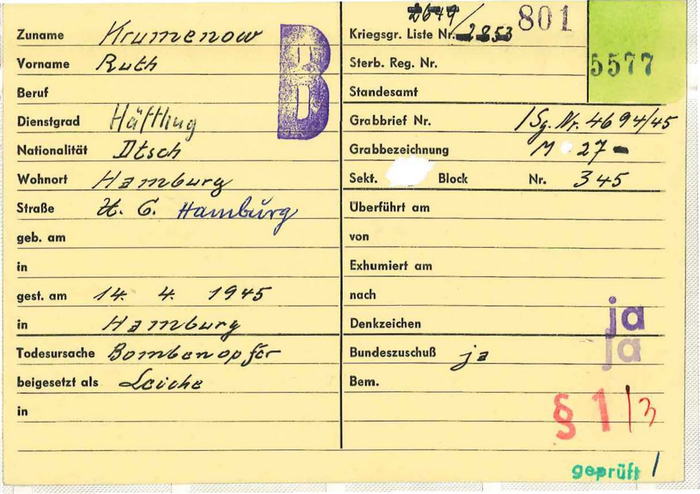 Zuname Krumenow
Vorname Ruth
Beruf
Dienstgrad Häftling
Nationalität Dtsch
Wohnort Hamburg
Straße K. G. Hamburg
geb. am
in
gest. am 14. 4. 1945
in Hamburg
Todesursache Bombenopfer
beigesetzt als Leiche
in
B
2649/ 801
Kriegsgr. Liste Nr. 2853
Sterb. Reg. Nr. 5577
Standesamt
Grabbrief Nr. /Sg. Nr. 4694/45
Grabbezeichnung M 27
Sekt. Block Nr. 345
Überführt am
von
Exhumiert am
nach
Denkzeichen ja
ja
Bundeszuschuß ja
Bem.
§ 1/3
geprüft /